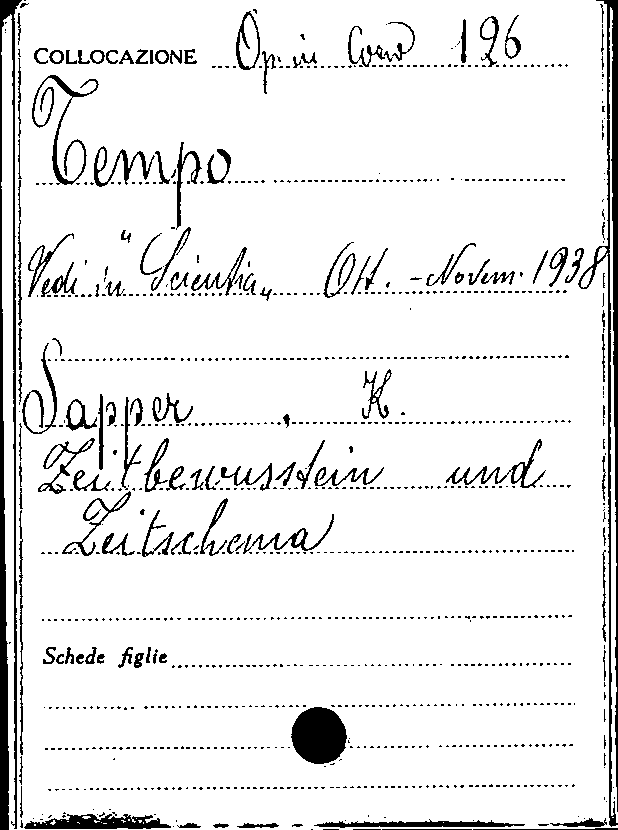 COLLOCAZIONE Op. in Corso 126
Tempo
Vedi in "Scientia„ Ott. - Novem. 1938
Sapper, K.
Zeitbewusstein und
Zeitschema
Schede figlie